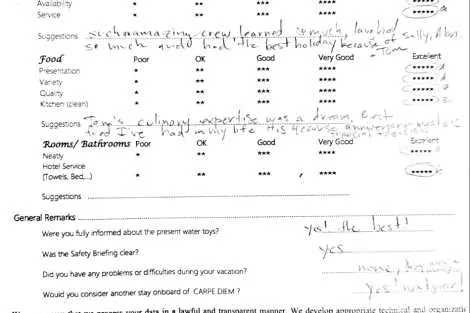 Availability * ** *** **** *****
Service * ** *** **** *****
Suggestions such amazing crew, learned so much, laughed
so much and had the best holiday because of Sally,
Tom
Food Poor OK Good Very Good Excellent
Presentation * ** *** **** *****
Variety * ** *** **** *****
Quality * ** *** **** *****
Kitchen (clean) * ** *** **** *****
Suggestions Tom's culinary expertise was a dream. Best
food I've had in my life
Rooms/ Bathrooms Poor OK Good Very Good Excellent
Neatly * ** *** **** *****
Hotel Service
(Towels, Bed,...) * ** *** **** *****
Suggestions
General Remarks
Were you fully informed about the present water toys? yes! the best!
Was the Safety Briefing clear? yes
Did you have any problems or difficulties during your vacation? none,
Would you consider another stay onboard of CARPE DIEM ? yes!
process your data in a lawful and transparent manner. We develop appropriate technical and